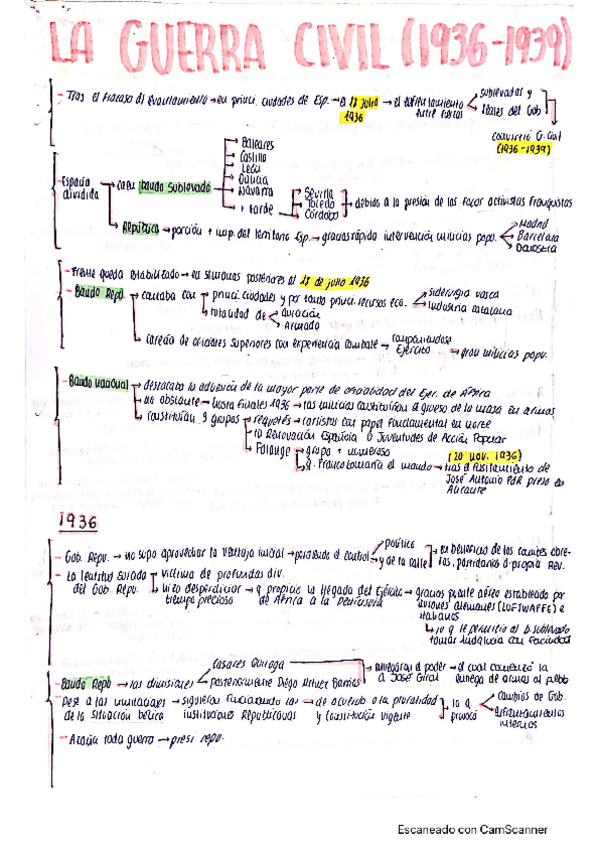 LA GUERRA CIVIL (1936-1939)
- Tras el fracaso dl levantamiento → en princi. ciudades de Esp. → el 18 julio 1936 → el enfrentamiento entre fuerzas
sublevados y
leales del Gob.
convirtió G. Civil
(1936-1939)
- Espacio dividido
cayó bando sublevado
Baleares
Castilla
León
Galicia
Navarra
+ tarde
Sevilla
Toledo
Córdoba
debido a la presión de las facc. activistas franquistas
República → porción + imp. del territorio Esp. → gracias rápida intervención milicias popu.
Madrid
Barcelona
- Frente queda estabilizado → en semanas posteriores al 18 de julio 1936
- Bando Repu. → contaba con
princi. ciudades y por tanto princi. recursos eco.
siderurgia vasca
industria catalana
totalidad de
aviación
armada
carecía de oficiales superiores con experiencia combate → Ejército → gran milicias popu.
- Bando nacional
destacaba la adhesión de la mayor parte de oficialidad del Ejer. de África
no obstante → hasta finales 1936 → las milicias constituían el grueso de la masa en armas
constituían 3 grupos
requetés → carlistas con papel fundamental en norte
Renovación Española o Juventudes de Acción Popular
Falange
grupo + numeroso
q. Franco tomaría el mando → tras el fusilamiento de
(20 nov. 1936)
José Antonio PdR preso en
Alicante
1936
- Gob. Repu. → no supo aprovechar la ventaja inicial → perdiendo el control
político
y de la calle
en beneficio de los comités obre-
ros, partidarios d propia rev.
- La lealtad
del Gob Repu.
víctima de profundas div.
hizo desperdiciar
tiempo precioso
q propició la llegada del Ejército
de África a la península
gracias puente aéreo establecido por
aviones alemanes (LUFTWAFFE) e
italianos
lo q le permitió al b sublevado
tomar Andalucía con facilidad
- Bando Repu → las dimisiones
Casares Quiroga
posteriormente Diego Mtnez Barrio
entregaron el poder
a José Giral
el cual comenzó la
entrega de armas al pueblo
- Pese a las limitaciones
de la situación bélica
siguieron funcionando las
instituciones Republicanas
de acuerdo a la pluralidad
y Constitución vigente
lo q
provocó
cambios de Gob.
enfrentamientos
internos
- Azaña toda guerra → presi repu.
Escaneado con CamScanner